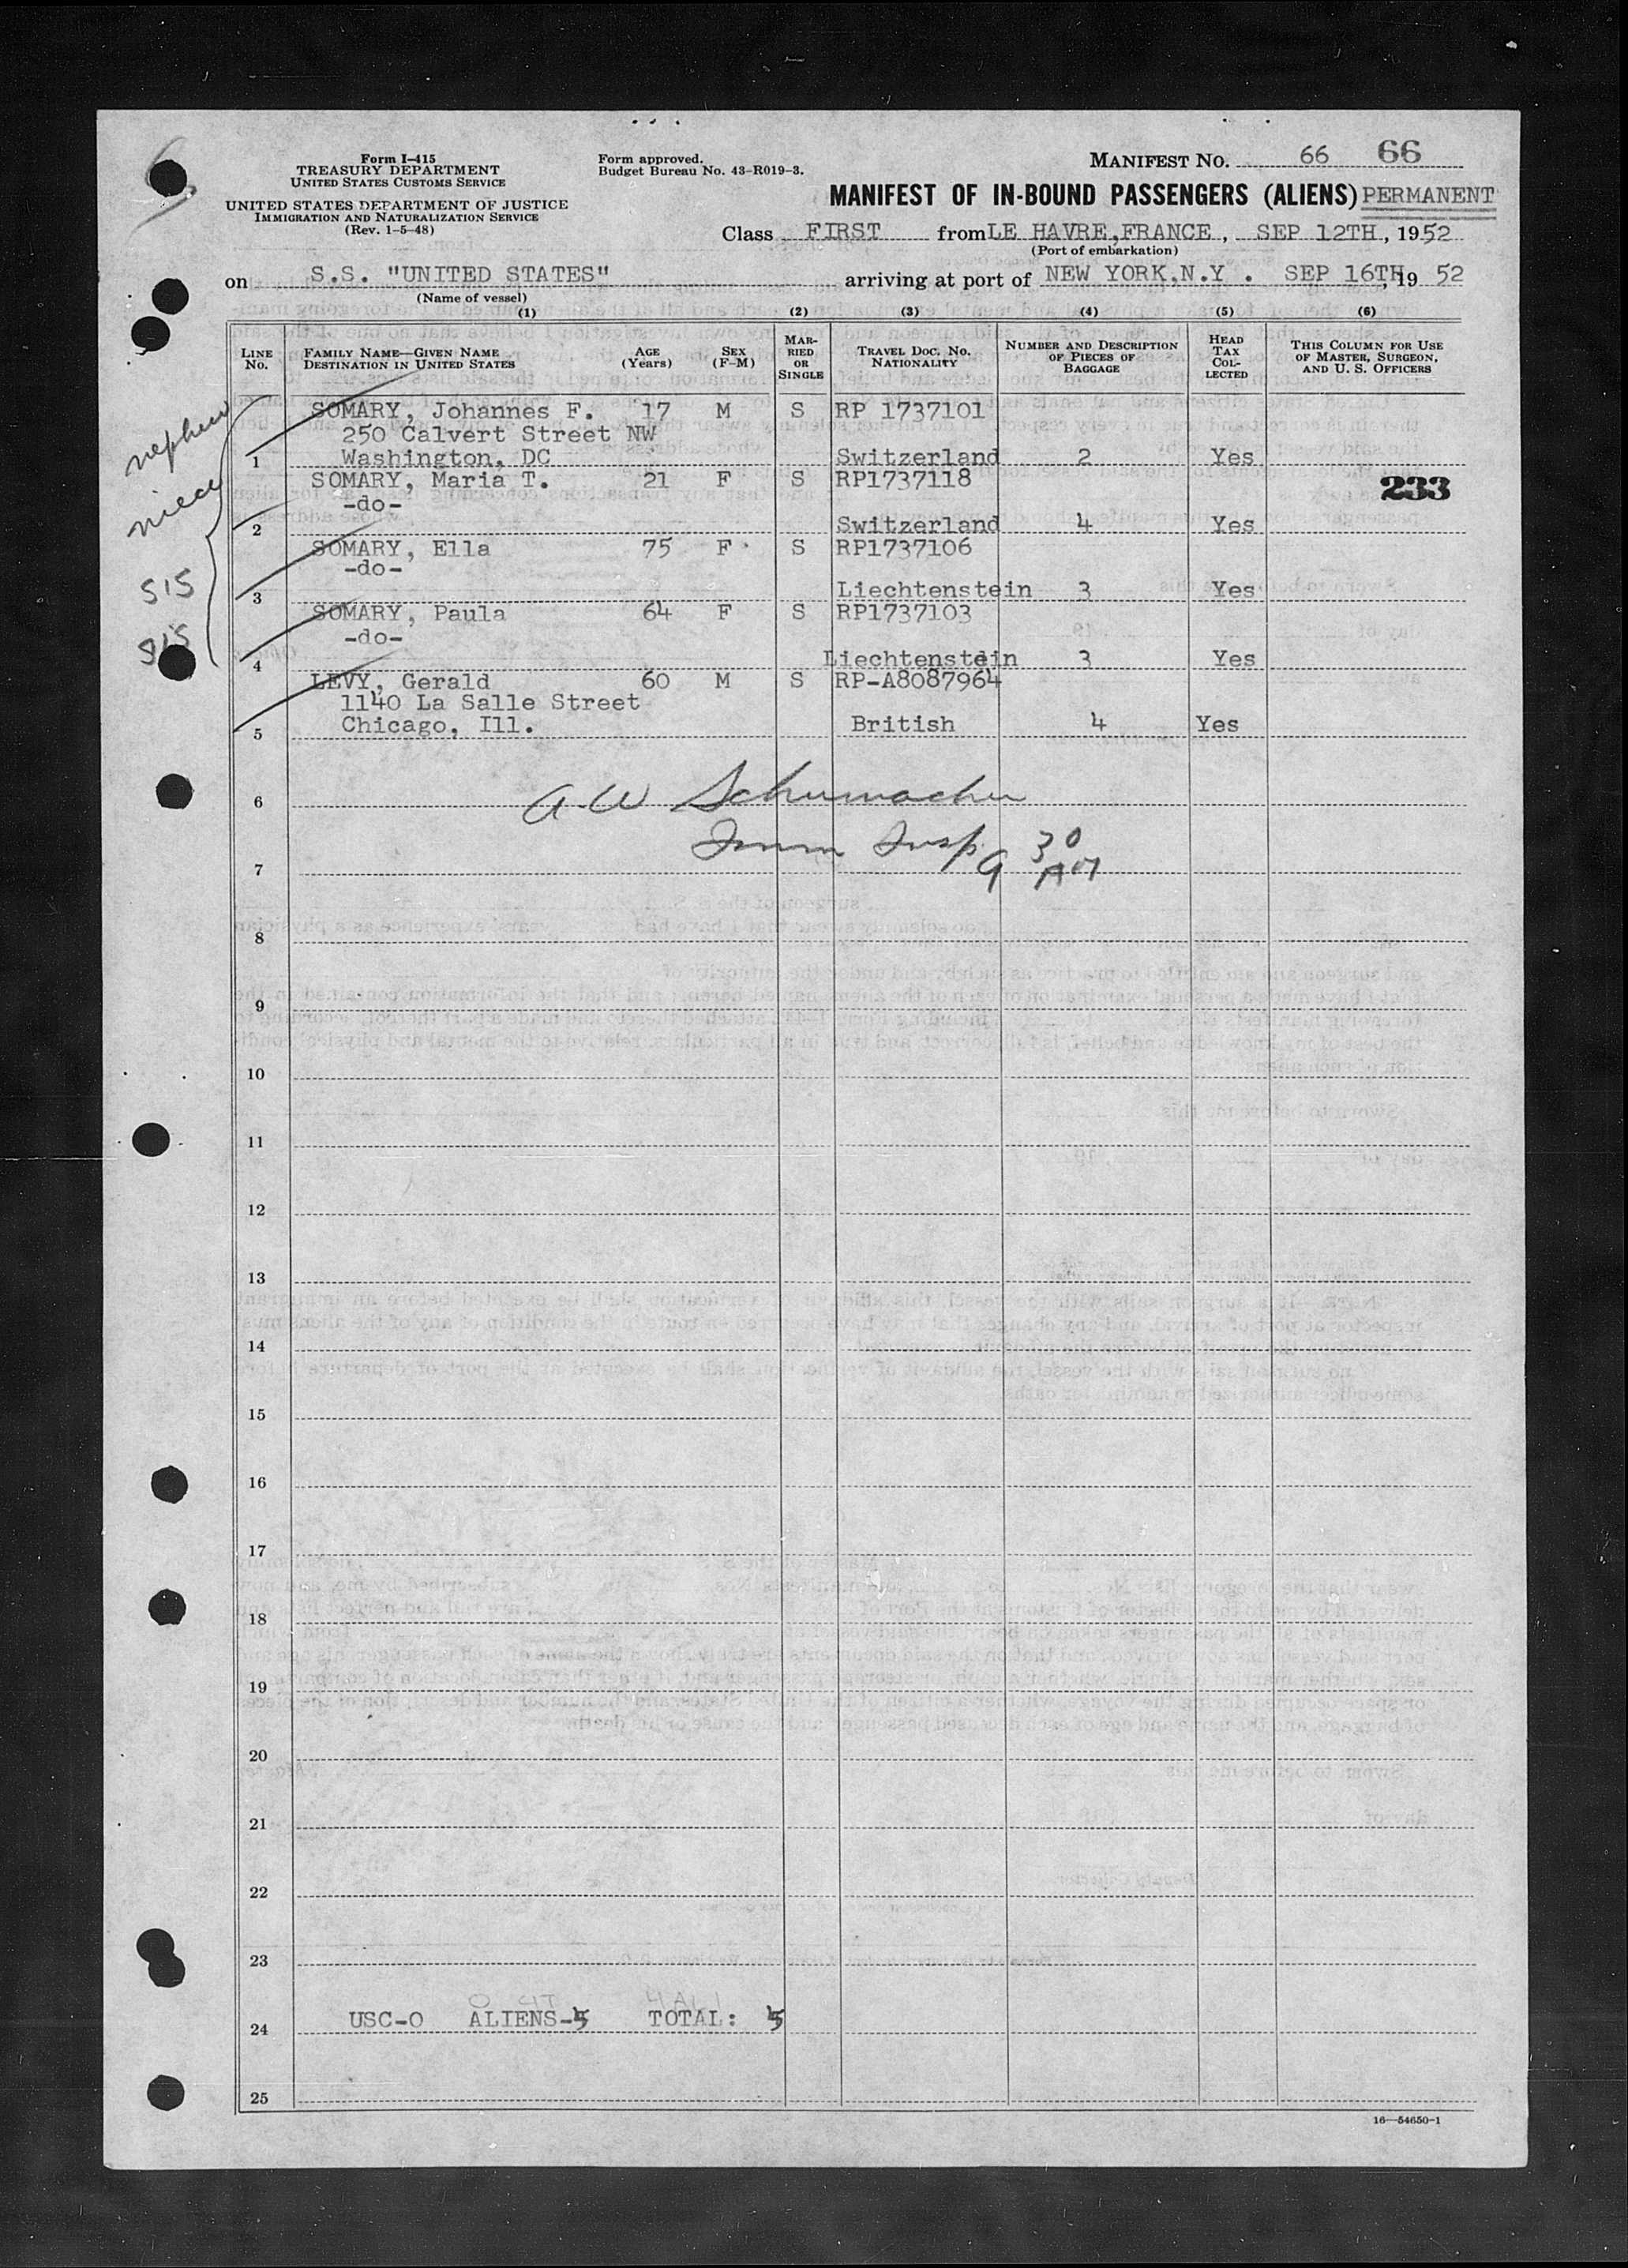 Form I-415
TREASURY DEPARTMENT
UNITED STATES CUSTOMS SERVICE
UNITED STATES DEPARTMENT OF JUSTICE
IMMIGRATION AND NATURALIZATION SERVICE
(Rev. 1-5-48)
Form approved.
Budget Bureau No. 43-R019-3.
MANIFEST NO. 66 66
MANIFEST OF IN-BOUND PASSENGERS (ALIENS) PERMANENT
Class FIRST from LE HAVRE,FRANCE, SEP 12TH, 1952
(Port of embarkation)
on S.S. "UNITED STATES" arriving at port of NEW YORK,N.Y. SEP 16TH, 19 52
(Name of vessel)
(1) (2) (3) (4) (5) (6)
LINE No. FAMILY NAME—GIVEN NAME DESTINATION IN UNITED STATES AGE (Years) SEX (F-M) MARRIED OR SINGLE TRAVEL DOC. NO. NATIONALITY NUMBER AND DESCRIPTION OF PIECES OF BAGGAGE HEAD TAX COLLECTED THIS COLUMN FOR USE OF MASTER, SURGEON, AND U. S. OFFICERS
nephew
SOMARY, Johannes F. 17 M S RP 1737101
250 Calvert Street NW
1 Washington, DC Switzerland 2 Yes
niece
SOMARY, Maria T. 21 F S RP1737118 233
-do-
2 Switzerland 4 Yes
SOMARY, Ella 75 F S RP1737106
-do-
sis
3 Liechtenstein 3 Yes
SOMARY, Paula 64 F S RP1737103
-do-
sis
4 Liechtenstein 3 Yes
LEVY, Gerald 60 M S RP-A8087964
1140 La Salle Street
5 Chicago, Ill. British 4 Yes
6 A.W Schumacher
Imm Insp
7 9 30 AM
8
9
10
11
12
13
14
15
16
17
18
19
20
21
22
23
24 USC-0 ALIENS-5 TOTAL: 5
25
16—54650-1